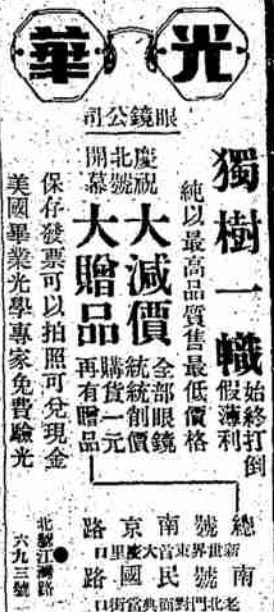 光華
眼鏡公司
獨樹一幟
始終打倒
假薄利
純以最高品質售最低價格
慶祝
北號
開幕
大減價
大贈品
全部眼鏡
統統削價
購貨一元
再有贈品
保存發票可以拍照可兌現金
美國畢業光學專家免費驗光
總號南京路
新世界東首大慶里口
南號民國路
老北門對面典當街口
北號江灣路
六九三號